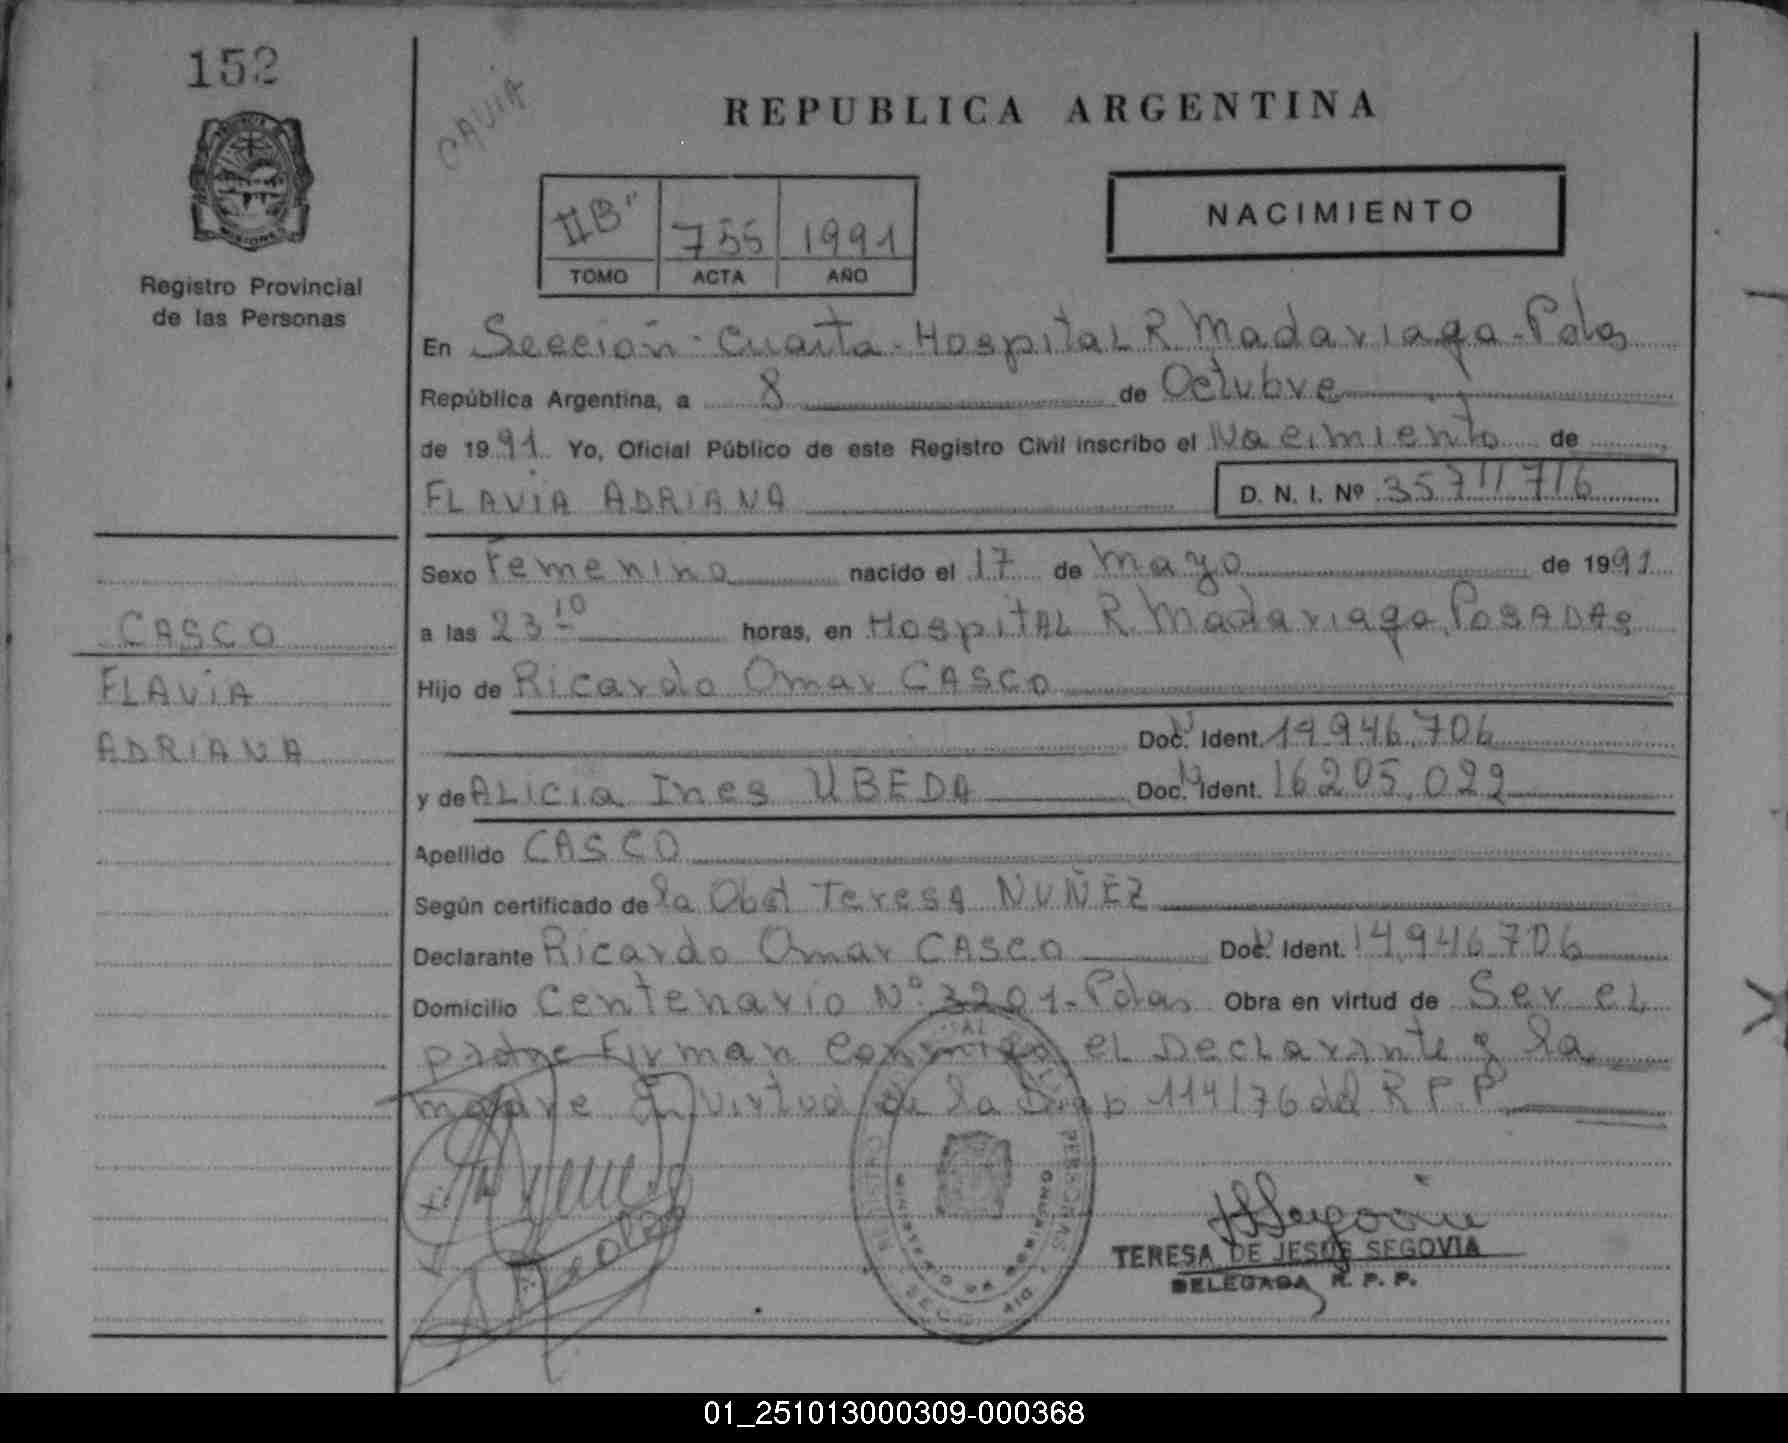 152
CAVIA
REPUBLICA ARGENTINA
II B" 755 1991
TOMO ACTA AÑO
NACIMIENTO
Registro Provincial
de las Personas
En Sección Cuarta - Hospital R Madariaga - Pdas
República Argentina, a 8 de Octubre
de 1991 Yo, Oficial Público de este Registro Civil inscribo el Nacimiento de
FLAVIA ADRIANA D. N. I. Nº 35711716
Sexo Femenino nacido el 17 de Mayo de 1991
CASCO
a las 23 10 horas, en Hospital R Madariaga, POSADAS
FLAVIA
Hijo de Ricardo Omar CASCO
ADRIANA
Doc. Ident. 14.946.706
y de ALICIA Ines UBEDA Doc. Ident. 16.205.029
Apellido CASCO
Según certificado de la Obst Teresa NUÑEZ
Declarante Ricardo Omar CASCO Doc. Ident. 14.946.706
Domicilio Centenario Nº 3201 - Pdas Obra en virtud de Ser el
padre Firman conmigo el Declarante y la
madre En virtud de la Disp 114/76 del R P P
TERESA DE JESUS SEGOVIA
DELEGADA R. P. P.
01_251013000309-000368